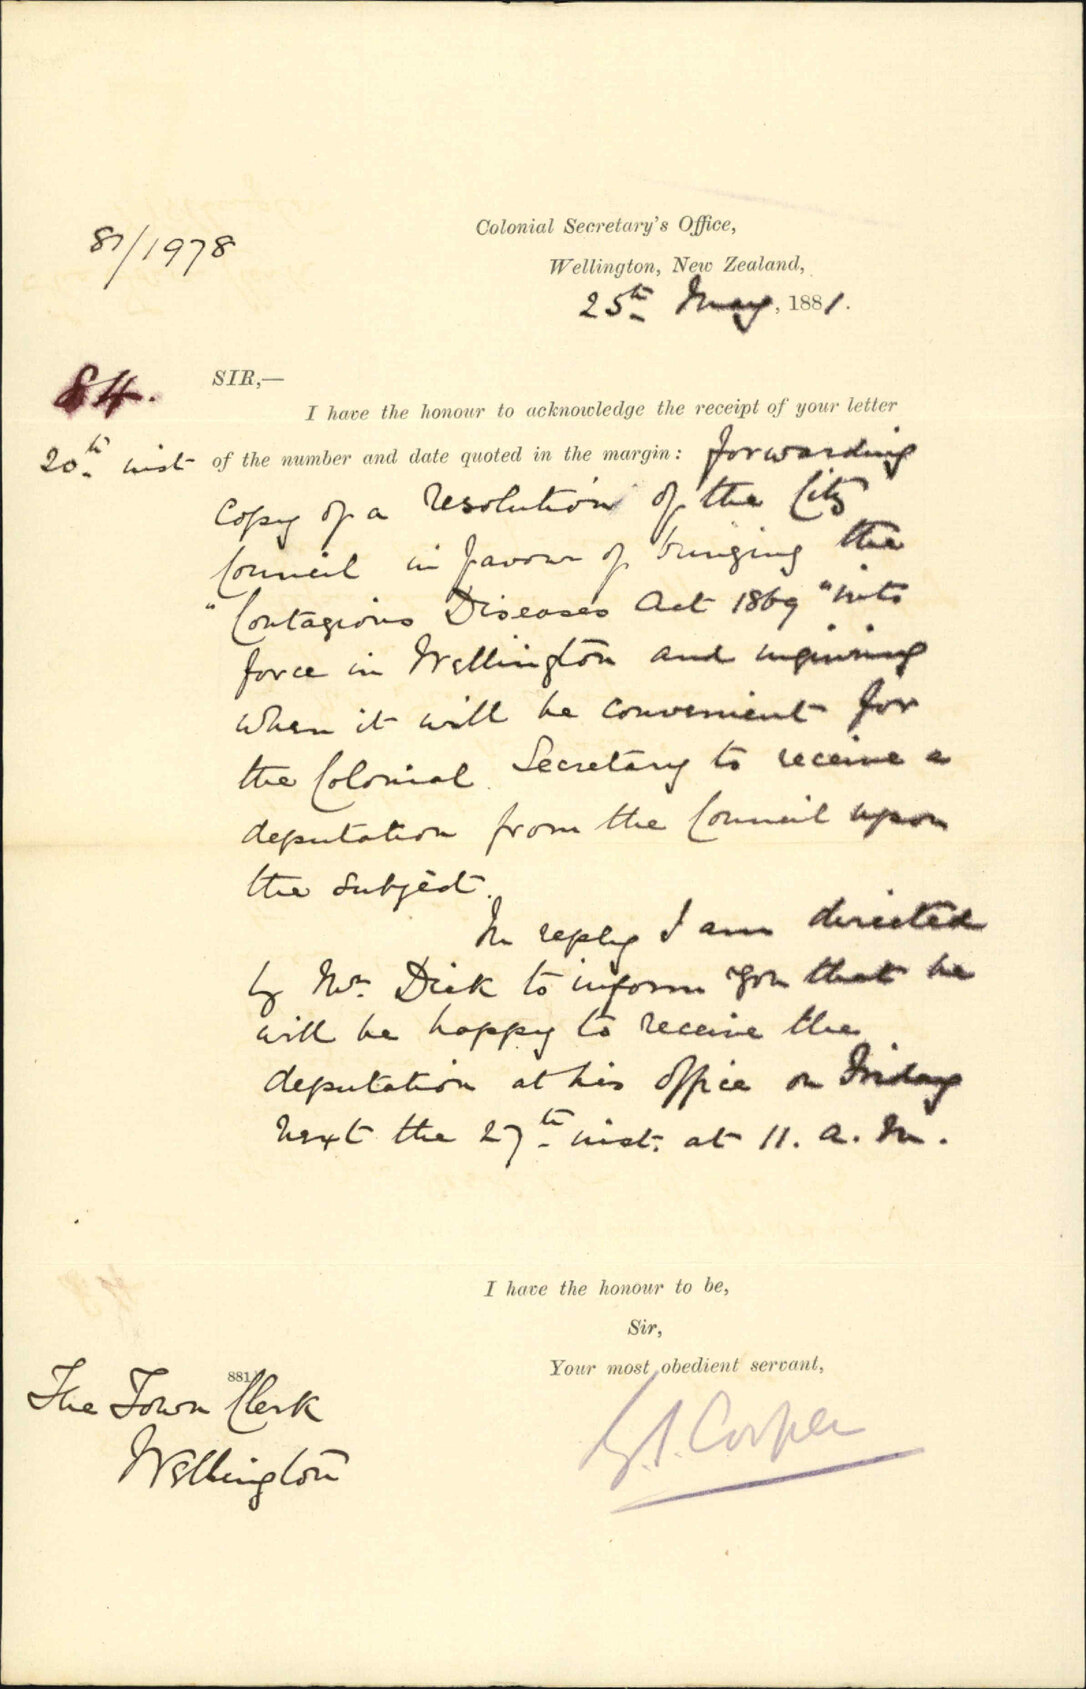 81/1978
Colonial Secretary's Office,
Wellington, New Zealand,
25th May, 1881.
84.
20th inst
SIR,—
I have the honour to acknowledge the receipt of your letter
of the number and date quoted in the margin: forwarding
copy of a resolution of the City
Council in favour of bringing the
"Contagious Diseases Act 1869" into
force in Wellington and inquiring
when it will be convenient for
the Colonial Secretary to receive a
deputation from the Council upon
the subject.
In reply I am directed
by Mr. Dick to inform you that he
will be happy to receive the
deputation at his office on Friday
next the 27th inst. at 11. a.m.
I have the honour to be,
Sir,
Your most obedient servant,
G.S. Cooper
881
The Town Clerk
Wellington